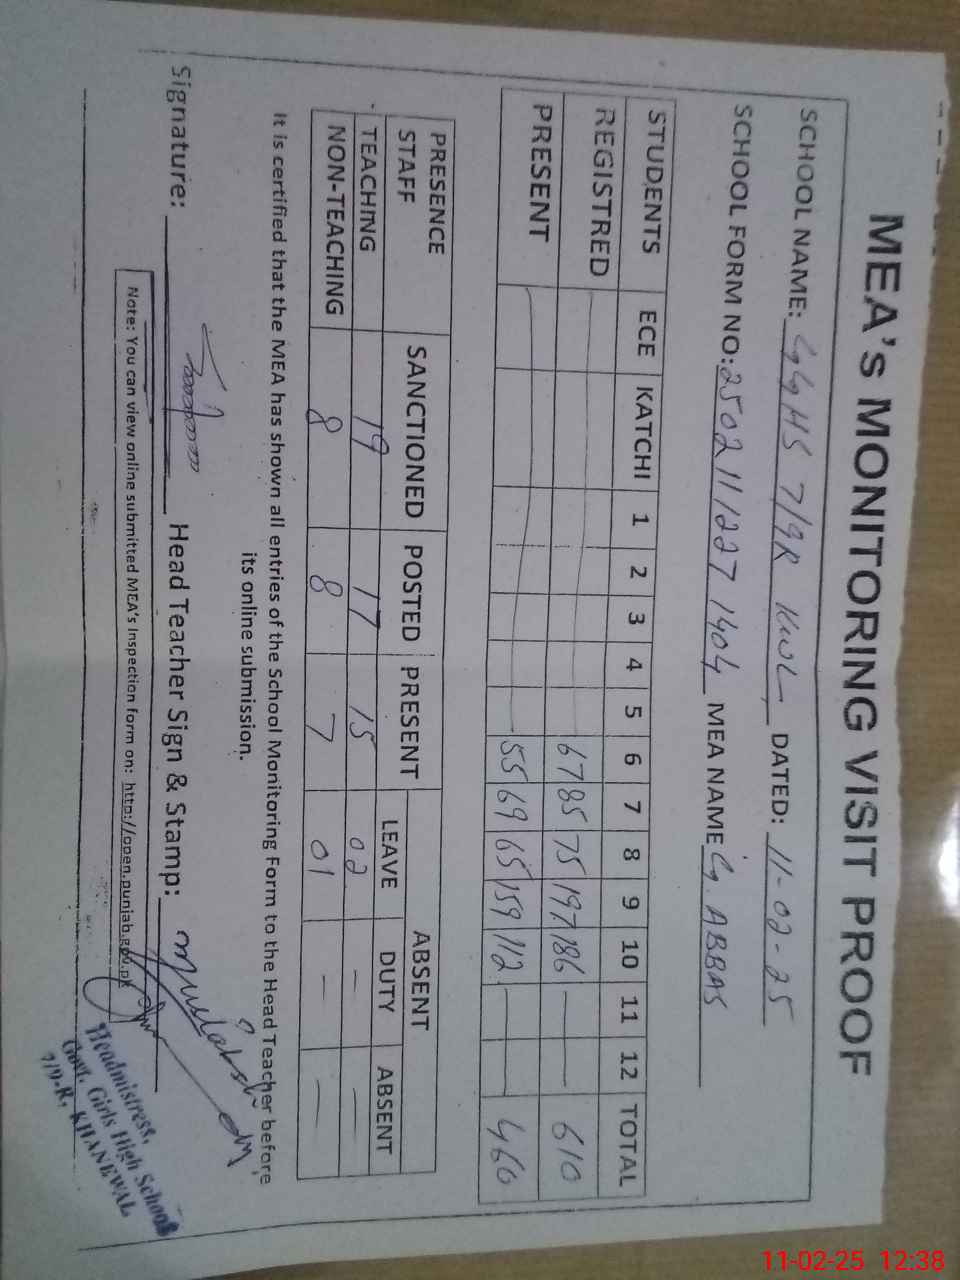 MEA'S MONITORING VISIT PROOF
SCHOOL NAME: GGHS 7/9R KWL DATED: 11-02-25
SCHOOL FORM NO: 2502111227 1404 MEA NAME G. ABBAS
STUDENTS ECE KATCHI 1 2 3 4 5 6 7 8 9 10 11 12 TOTAL
REGISTRED 67 85 75 197 186 — — 610
PRESENT 55 69 65 159 112 — — 460
PRESENCE SANCTIONED POSTED PRESENT ABSENT
STAFF LEAVE DUTY ABSENT
TEACHING 19 17 15 02 — —
NON-TEACHING 8 8 7 01 — —
It is certified that the MEA has shown all entries of the School Monitoring Form to the Head Teacher before
its online submission.
Signature: Head Teacher Sign & Stamp:
Note: You can view online submitted MEA's Inspection form on: http://open.punjab.gov.pk
Headmistress,
Govt. Girls High School
7/9-R, KHANEWAL
11-02-25 12:38